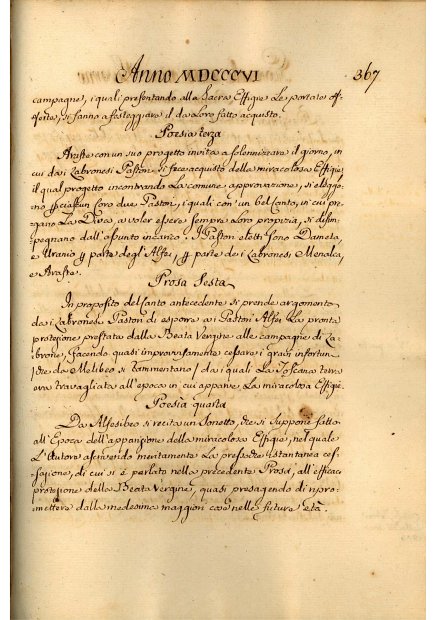 Anno MDCCCVI 367
campagne, i quali presentando alla Sacra Effigie le portate of-
ferte, si fanno a festeggiare il da loro fatto acquisto.
Poesia terza
Arafre con un suo progetto invita a solennizzare il giorno, in
cui da i Zabronesi Pastori si fece acquisto della miracolosa Effigie,
il qual progetto incontrando la comune approvazione, si eleggo-
no p ciascun Coro due Pastori, i quali con un bel Canto, in cui pre-
gano la Diva a voler essere sempre loro propizia, si disim-
pegnano dall'assunto incarico. I Pastori eletti sono Dameta,
e Uranio p parte degl'Alfei, p parte de i Zabronesi Menalca,
e Arafre.
Prosa Sesta
In proposito del Canto antecedente si prende argomento
da i Zabronesi Pastori di esporre a i Pastori Alfei la pronta
protezione prestata dalla Beata Vergine alle campagne di Za-
brone, facendo quasi improvvisamente cessare i gravi infortun
che da Melibeo si rammentano da i quali la Toscana terra
era travagliata all'epoca in cui apparve la miracolosa Effigie.
Poesia quarta
Da Alfesibeo si recita un Sonetto, che si suppone fatto
all'Epoca dell'apparizione della miracolosa Effigie, nel quale
l'Autore ascrivendo meritamente la istantanea ces-
sazione, di cui si è parlato nella precedente Prosa, all'efficace
protezione della Beata Vergine, quasi presagendo di ripro-
mettere dalla medesima maggiori cose nelle future età.